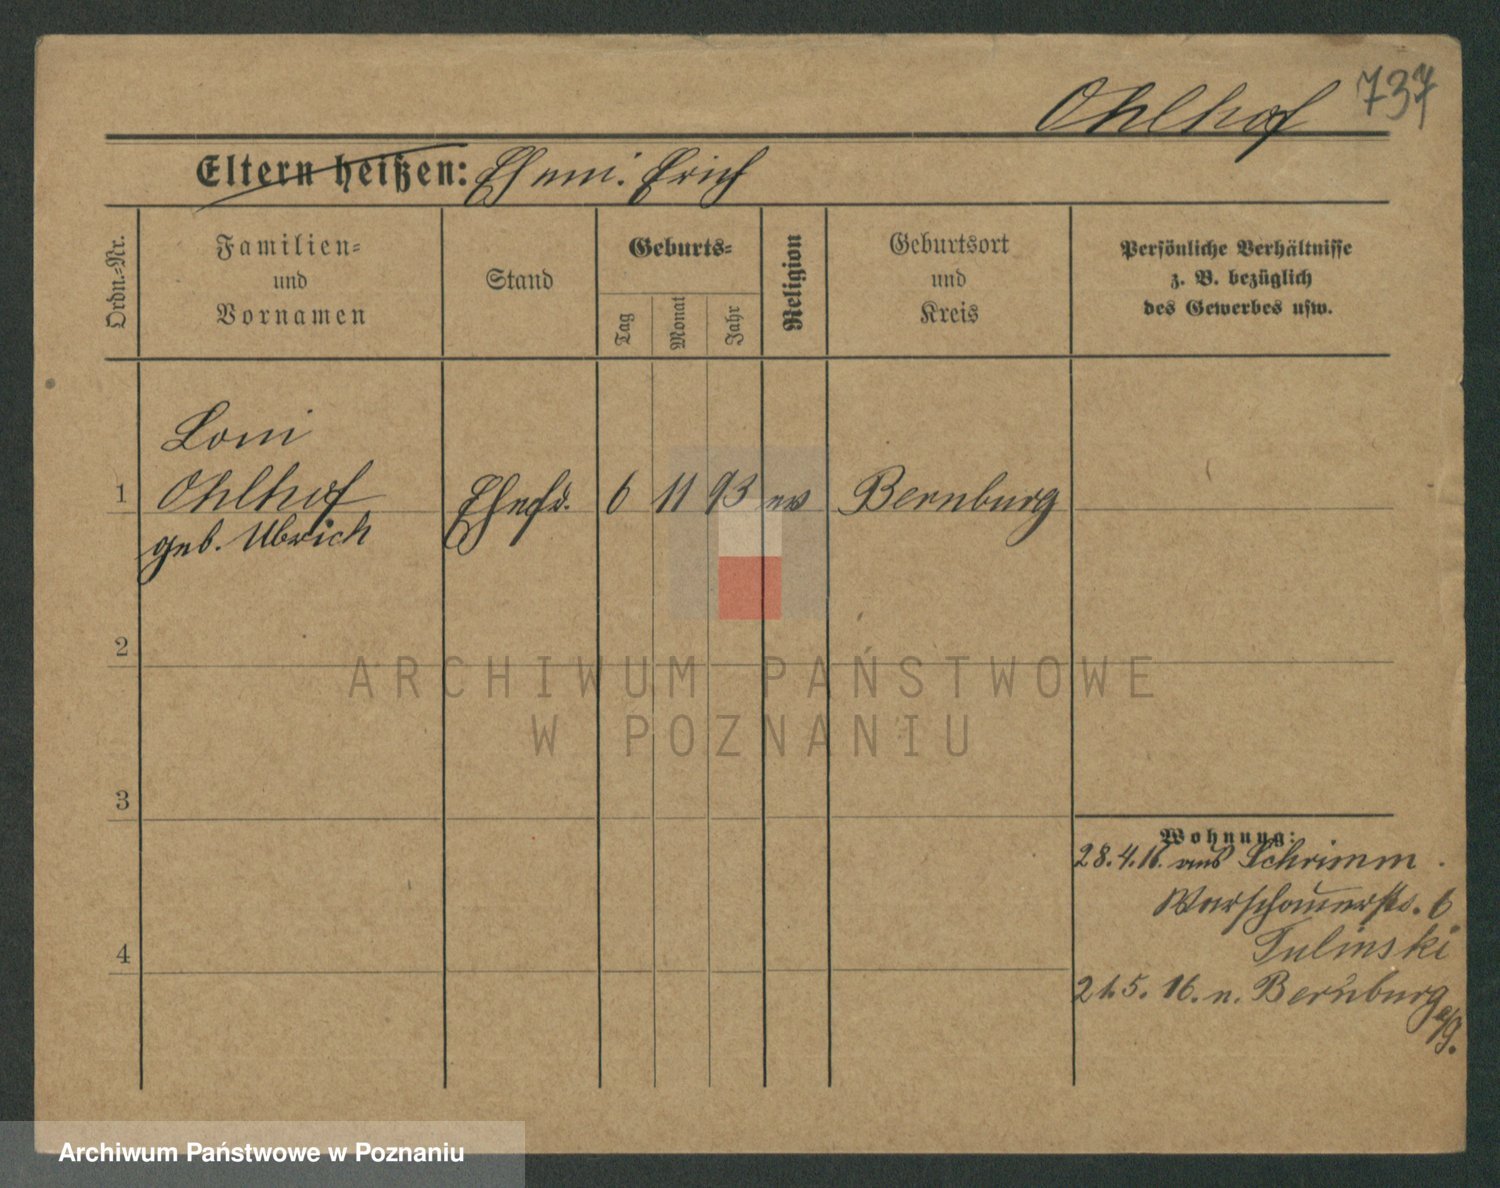 Ohlhof 737
Eltern heißen: Ehem. Erich
Ordn.-Nr.
Familien-
und
Vornamen
Stand
Geburts-
Tag
Monat
Jahr
Religion
Geburtsort
und
Kreis
Persönliche Verhältnisse
z. B. bezüglich
des Gewerbes usw.
Loni
1 Ohlhof Ehefr. 6 11 93 ev Bernburg
geb. Ulbrich
2
3
4
Wohnung:
28.4.16. aus Schrimm.
Warschauerstr. 6
Tulinski
21.5.16. n. Bernburg
a/S.
ARCHIWUM PAŃSTWOWE
W POZNANIU
Archiwum Państwowe w Poznaniu